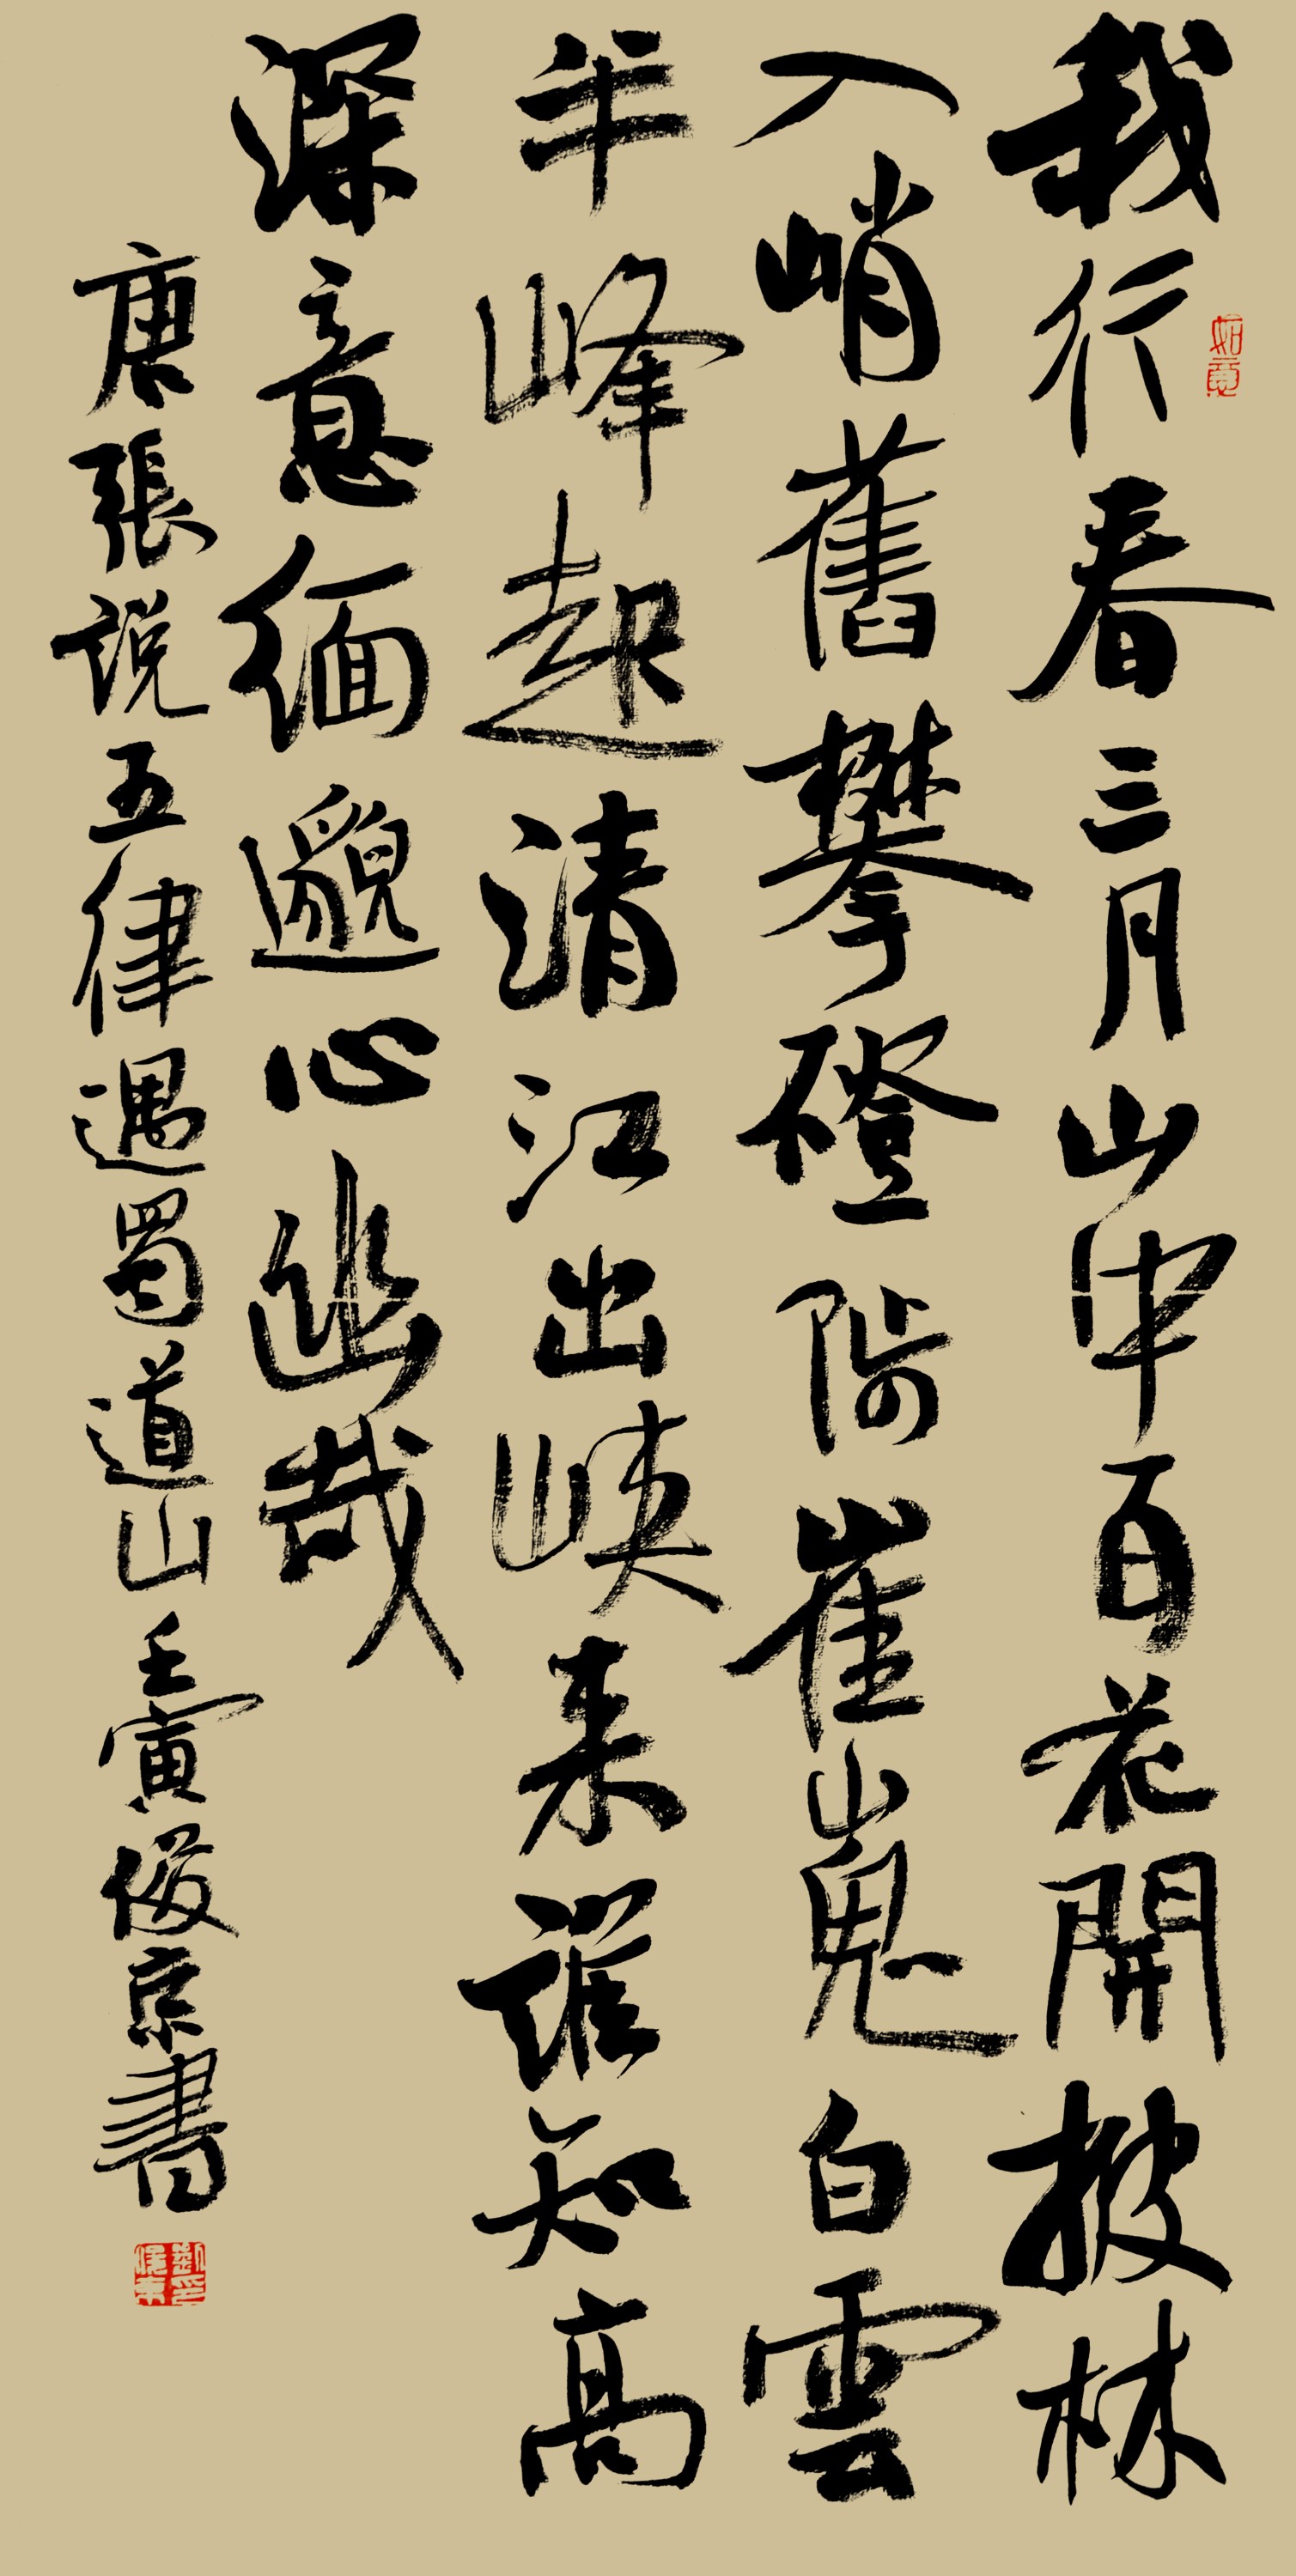 我行春三月山中百花開披林
入峭舊攀磴陟崔嵬白雲
半峰起清江出峡来誰知高
深意緬邈心幽哉
唐張説五律遇蜀道山壬寅俊京書
如意